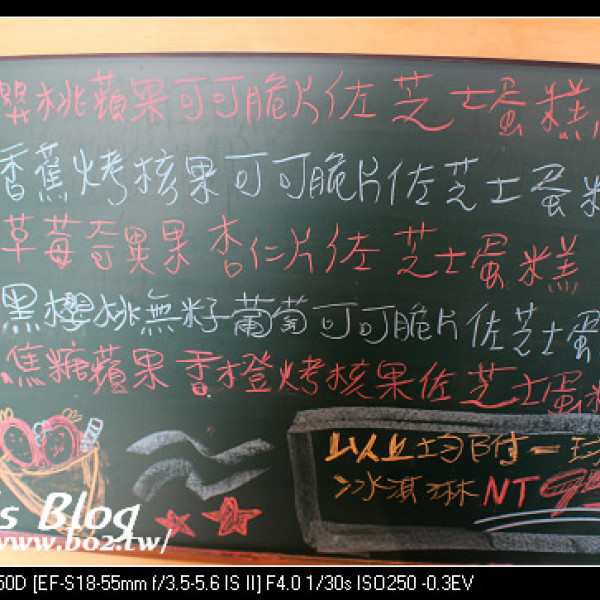 櫻桃蘋果可可脆片佐芝士蛋糕
香蕉烤核果可可脆片佐芝士蛋糕
草莓奇異果杏仁片佐芝士蛋糕
黑櫻桃無籽葡萄可可脆片佐芝士蛋
焦糖蘋果香橙烤核果佐芝士蛋糕
以上均附一球
冰淇淋NT
s Blog
www.bo2.tw/
50D [EF-S18-55mm f/3.5-5.6 IS II] F4.0 1/30s ISO250 -0.3EV